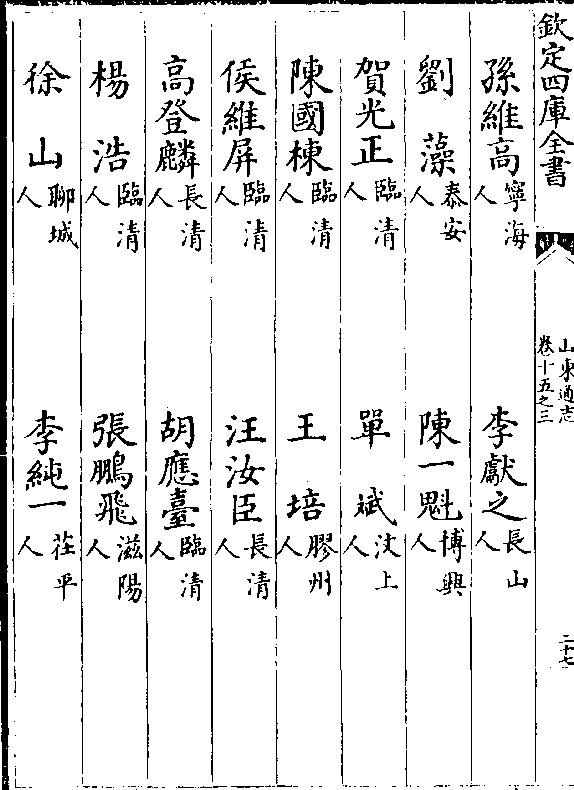 欽定四庫全書
山東通志
卷十五之三
二十七
孫維高寧海人　李獻之長山人
劉藻泰安人　陳一魁博興人
賀光正臨清人　單斌汶上人
陳國棟臨清人　王培膠州人
侯維屏臨清人　汪汝臣長清人
高登麟長清人　胡應臺臨清人
楊浩臨清人　張鵬飛滋陽人
徐山聊城人　李純一茌平人